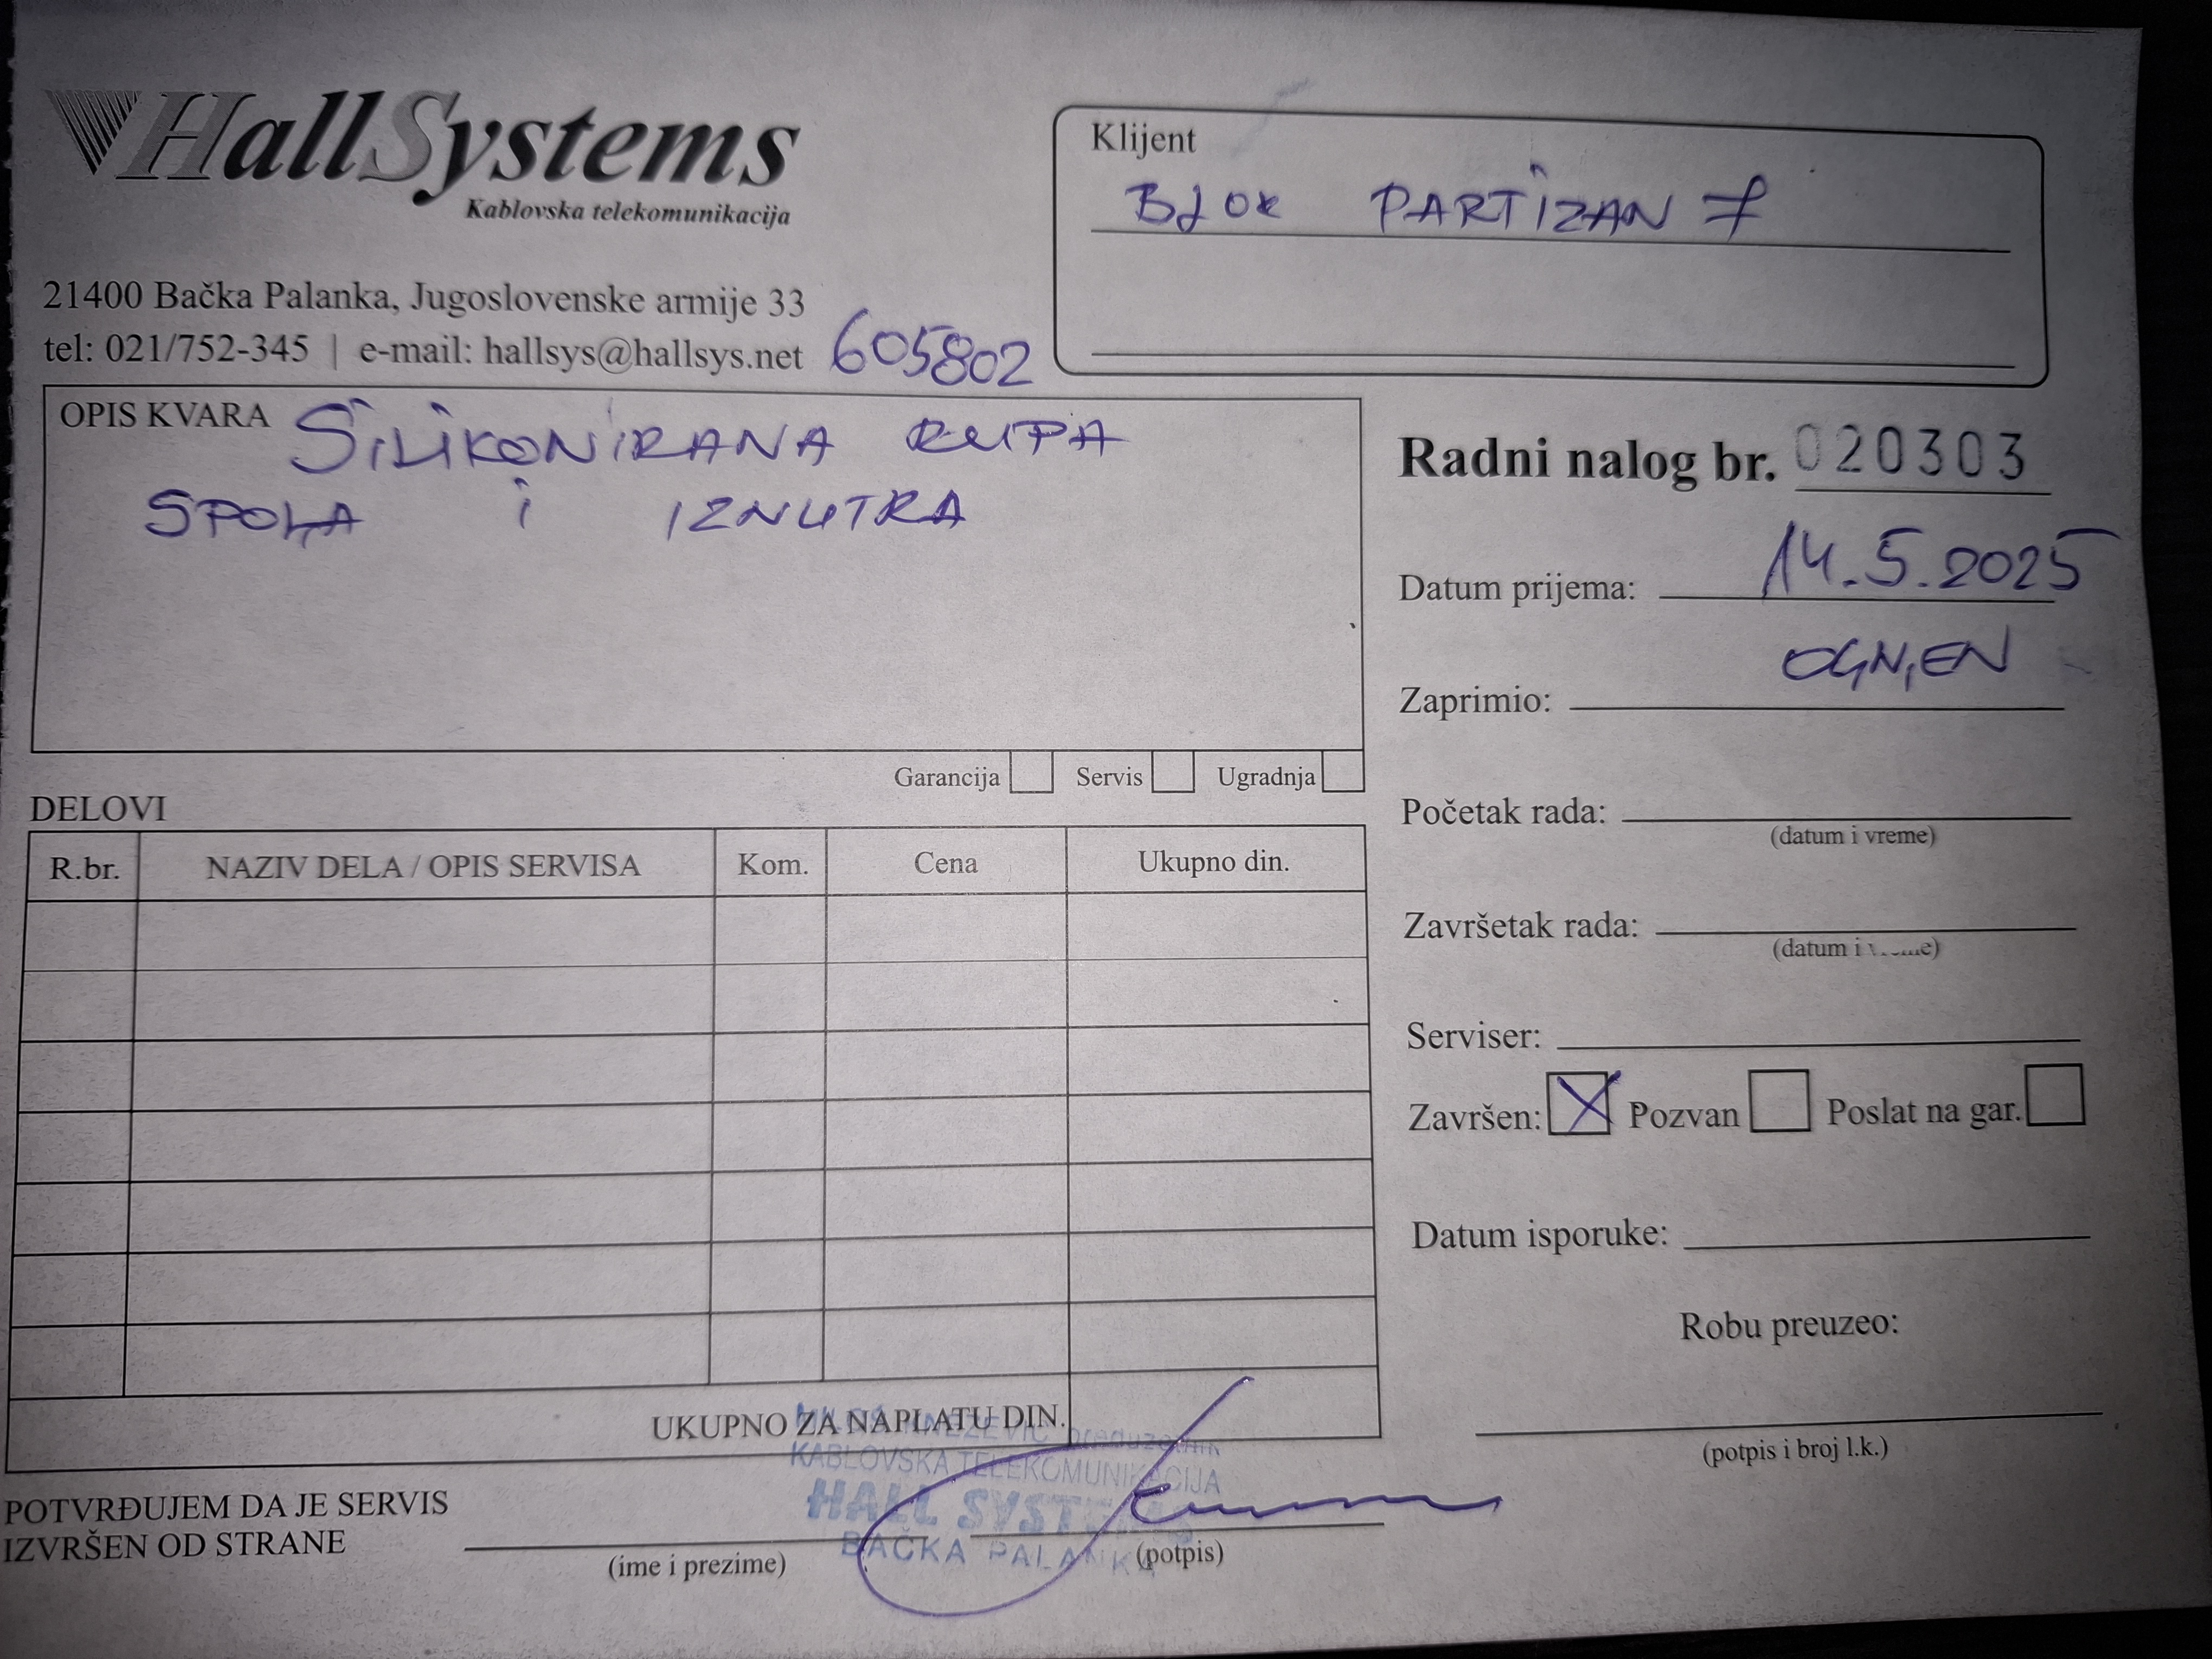 HallSystems
Kablovska telekomunikacija
21400 Bačka Palanka, Jugoslovenske armije 33
tel: 021/752-345 | e-mail: hallsys@hallsys.net 605802
Klijent
BLOK PARTIZAN 7
OPIS KVARA SILIKONIRANA RUPA
SPOLA I IZNUTRA
Garancija Servis Ugradnja
Radni nalog br. 020303
Datum prijema: 14.5.2025
Zaprimio: OGNJEN
Početak rada:
(datum i vreme)
Završetak rada:
(datum i vreme)
Serviser:
Završen: X Pozvan Poslat na gar.
Datum isporuke:
Robu preuzeo:
(potpis i broj l.k.)
DELOVI
R.br. NAZIV DELA / OPIS SERVISA Kom. Cena Ukupno din.
UKUPNO ZA NAPLATU DIN.
KABLOVSKA TELEKOMUNIKACIJA
HALL SYSTEMS
BAČKA PALANKA
POTVRĐUJEM DA JE SERVIS
IZVRŠEN OD STRANE
(ime i prezime) (potpis)